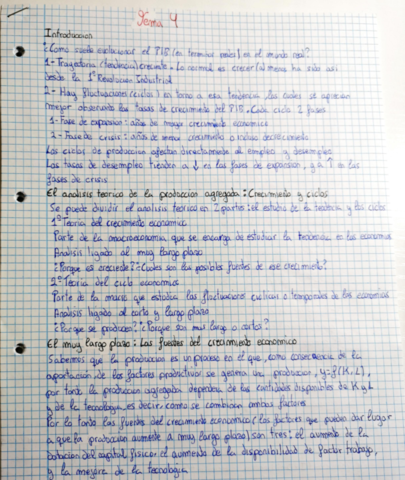 Tema 4
Introduccion
¿Como suele evolucionar el PIB (en terminos reales) en el mundo real?
1- Trayectoria (tendencia) creciente. Lo normal es crecer (al menos ha sido así
desde la 1º Revolucion Industrial
2- Hay fluctuaciones (ciclos) en torno a esa tendencia los cuales se aprecian
mejor observando las tasas de crecimiento del PIB. Cada ciclo 2 fases
1- Fase de expansion: años de mayor crecimiento economico
2- Fase de crisis: años de menor crecimiento o incluso decrecimiento
Los ciclos de produccion afectan directamente al empleo y desempleo
Las tasas de desempleo tienden a ↓ en las fases de expansion, y a ↑ en las
fases de crisis
El analisis teorico de la produccion agregada: Crecimiento y ciclos
Se puede dividir el analisis teorico en 2 partes: el estudio de la tendencia y los ciclos
1º Teoria del crecimiento economico
Parte de la macroeconomia que se encarga de estudiar la tendencia en las economias
Analisis ligado al muy largo plazo
¿Porque es creciente? ¿Cuales son las posibles fuentes de ese crecimiento?
2º Teoria del ciclo economico
Parte de la macro que estudia las fluctuaciones ciclicas o temporales de las economias
Analisis ligado al corto y largo plazo
¿Porque se producen? ¿Porque son mas largo o cortos?
El muy largo plazo: Las fuentes del crecimiento economico
Sabemos que la produccion es un proceso en el que, como consecuencia de la
aportacion de los factores productivos se genera un produccion, Y=f(K,L),
por tanto la produccion agregada dependera de las cantidades disponibles de K y L
y de la tecnologia, es decir, como se combinan ambos factores
Por lo tanto las fuentes del crecimiento economico (los factores que pueden dar lugar
a que la produccion aumente a muy largo plazo) son tres: el aumento de la
dotacion del capital fisico, el aumento de la disponibilidad de factor trabajo,
y la mejora de la tecnologia